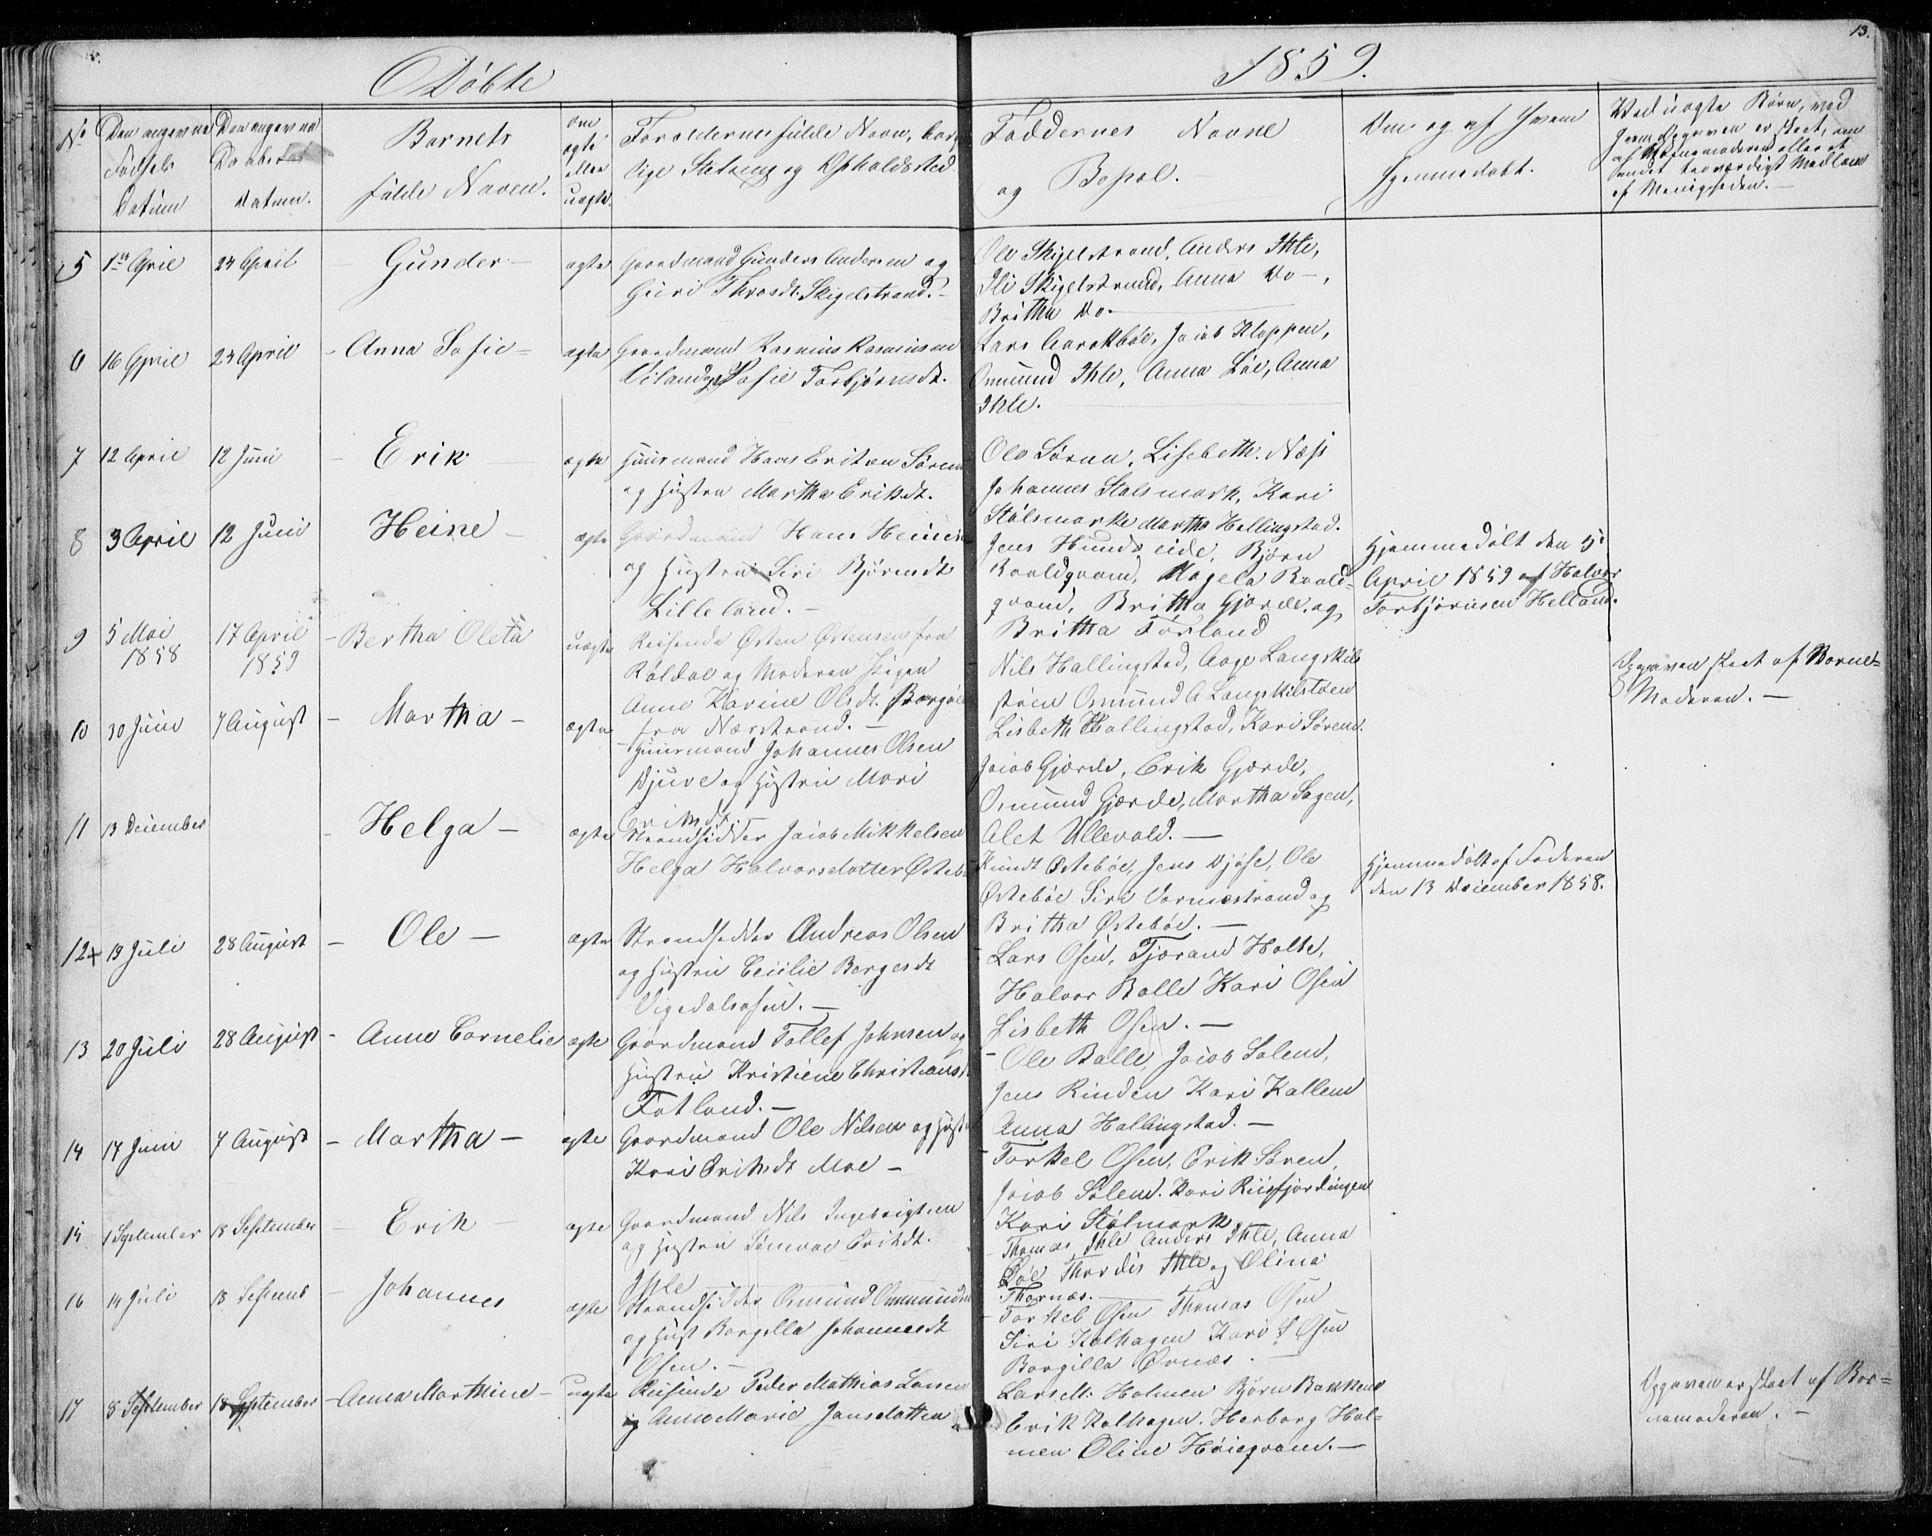 13.
Döbte 1859.
No
Den angevne Fødsels Datum
Den angevne Daabs Datum.
Barnets fulde Navn.
om ægte eller uægte.
Forældernes fulde Navn, borgerlige Stilling og Opholdsted.
Faddernes Navne og Bopæl.
Om og af hvem hjemmedøbt.
Ved uægte Børn, ved hvem Opgaven er skeet, om af Barnemoderen eller et andet troværdigt Medlem af Menigheden.
5 1ste April 24 April Gunder ægte Gaardmand Gunders Andersen og
Guri Throndsdt. Skigelstrand.
Ole Skigelstrand, Anders Ihle,
Ili Skigelstrand, Anna Do,
Britha Do.
6 16 April 24 April Anna Sofie ægte Gaardmand Rasmus Rasmussen
Vilandp Sofie Torbjørnsdt.
Lars Aarekbøe, Jacob Kloppen,
Omund Ihle, Anna Løe, Anna
Ihle.
7 12 April 12 Juni Erik ægte Huusmand Hans Eriksen Søren
og Hustru Martha Eriksdt.
Ole Søren, Lisebeth Næss
Johannes Stølsmark, Kari
Stølsmarke Martha Hallingstad.
8 3 April 12 Juni Heine ægte Gaardmand Hans Heines
og Hustru Siri Bjørnsdt
Lilleland.
Jens Hundseide, Bjørn
Rvaldqvam, Magela Rvald-
qvam, Britha Gjærde og
Britha Førland
Hjemmedøbt den 5
April 1859 af Halvor
Torbjørnsen Helland.
9 5 Mai 1858 17 April 1859 Bertha Oleta uægte Reisende Østen Østensen fra
Røldal og Moderen Pigen
Anne Karine Olsdt. Borgøe
fra Nærstrand.
Nils Hallingstad, Aage Langskil
støen Omund A Langskilstøen
Lisbeth Hallingstad, Kari Søren.
Opgaven skeet af Barne-
Moderen.
10 30 Juni 7 August Martha ægte Huusmand Johannes Olsen
Djuve og Hustru Mari
Eriksdt.
Jacob Gjærde, Erik Gjærde,
Omund Gjærde, Martha Sagen,
Alet Ullevold.
11 13 December Helga ægte Strandsidder Jacob Mikkelsen
Helga Halvorsdatter Østebø
Knudt Østebøe, Jens Djøse, Ole
Østebøe Siri Varmestrand og
Britha Østebøe.
Hjemmedøbt af Faderen
den 13 December 1858.
12 + 19 Juli 28 August Ole ægte Strandsidder Andreas Olsen
og Hustru Cecilie Bergesdt
Vigedalsosen.
Lars Osen, Tjærand Holte,
Halvor Balle Kari Osen
Lisbeth Osen.
13 20 Juli 28 August Anne Cornelie ægte Gaardmand Tollef Johnsen og
Hustru Kristiene Christiansdt
Fatland.
Ole Balle, Jacob Solem,
Jens Rinden Kari Kallem
Anna Hallingstad.
14 17 Juni 7 August Martha ægte Gaardmand Ole Nilsen og Hust
Kari Eriksdt Moe
Torkel Osen, Erik Søren,
Jacob Solem. Kari Riisfjordingen
Kari Stølmark
15 1 September 18 September Erik ægte Gaardmand Nils Ingebrigtsen
og Hustru Sønneve Eriksdt.
Ihle
Thomas Ihle Anders Ihle, Anna
Løe Thordis Ihle og Olina
Thornæs.
16 14 Juli 18 Septemb Johannes ægte Strandsidder Omund Ommundsen
og Hust Borgilla Johannesdt
Osen.
Torkel Osen Thomas Osen
Siri Kalhagen Kari S Osen
Borgilla Ørnæs.
17 8 September 18 September Anna Marthine uægte Reisende Peder Mathias Larsen
og Anne Marie Jansdatter
Lars M. Holmen Bjørn Bakken
Erik Kalhagen. Herborg Hol-
men Oline Høieqvam.
Opgaven er skeet af Bar-
nemoderen.